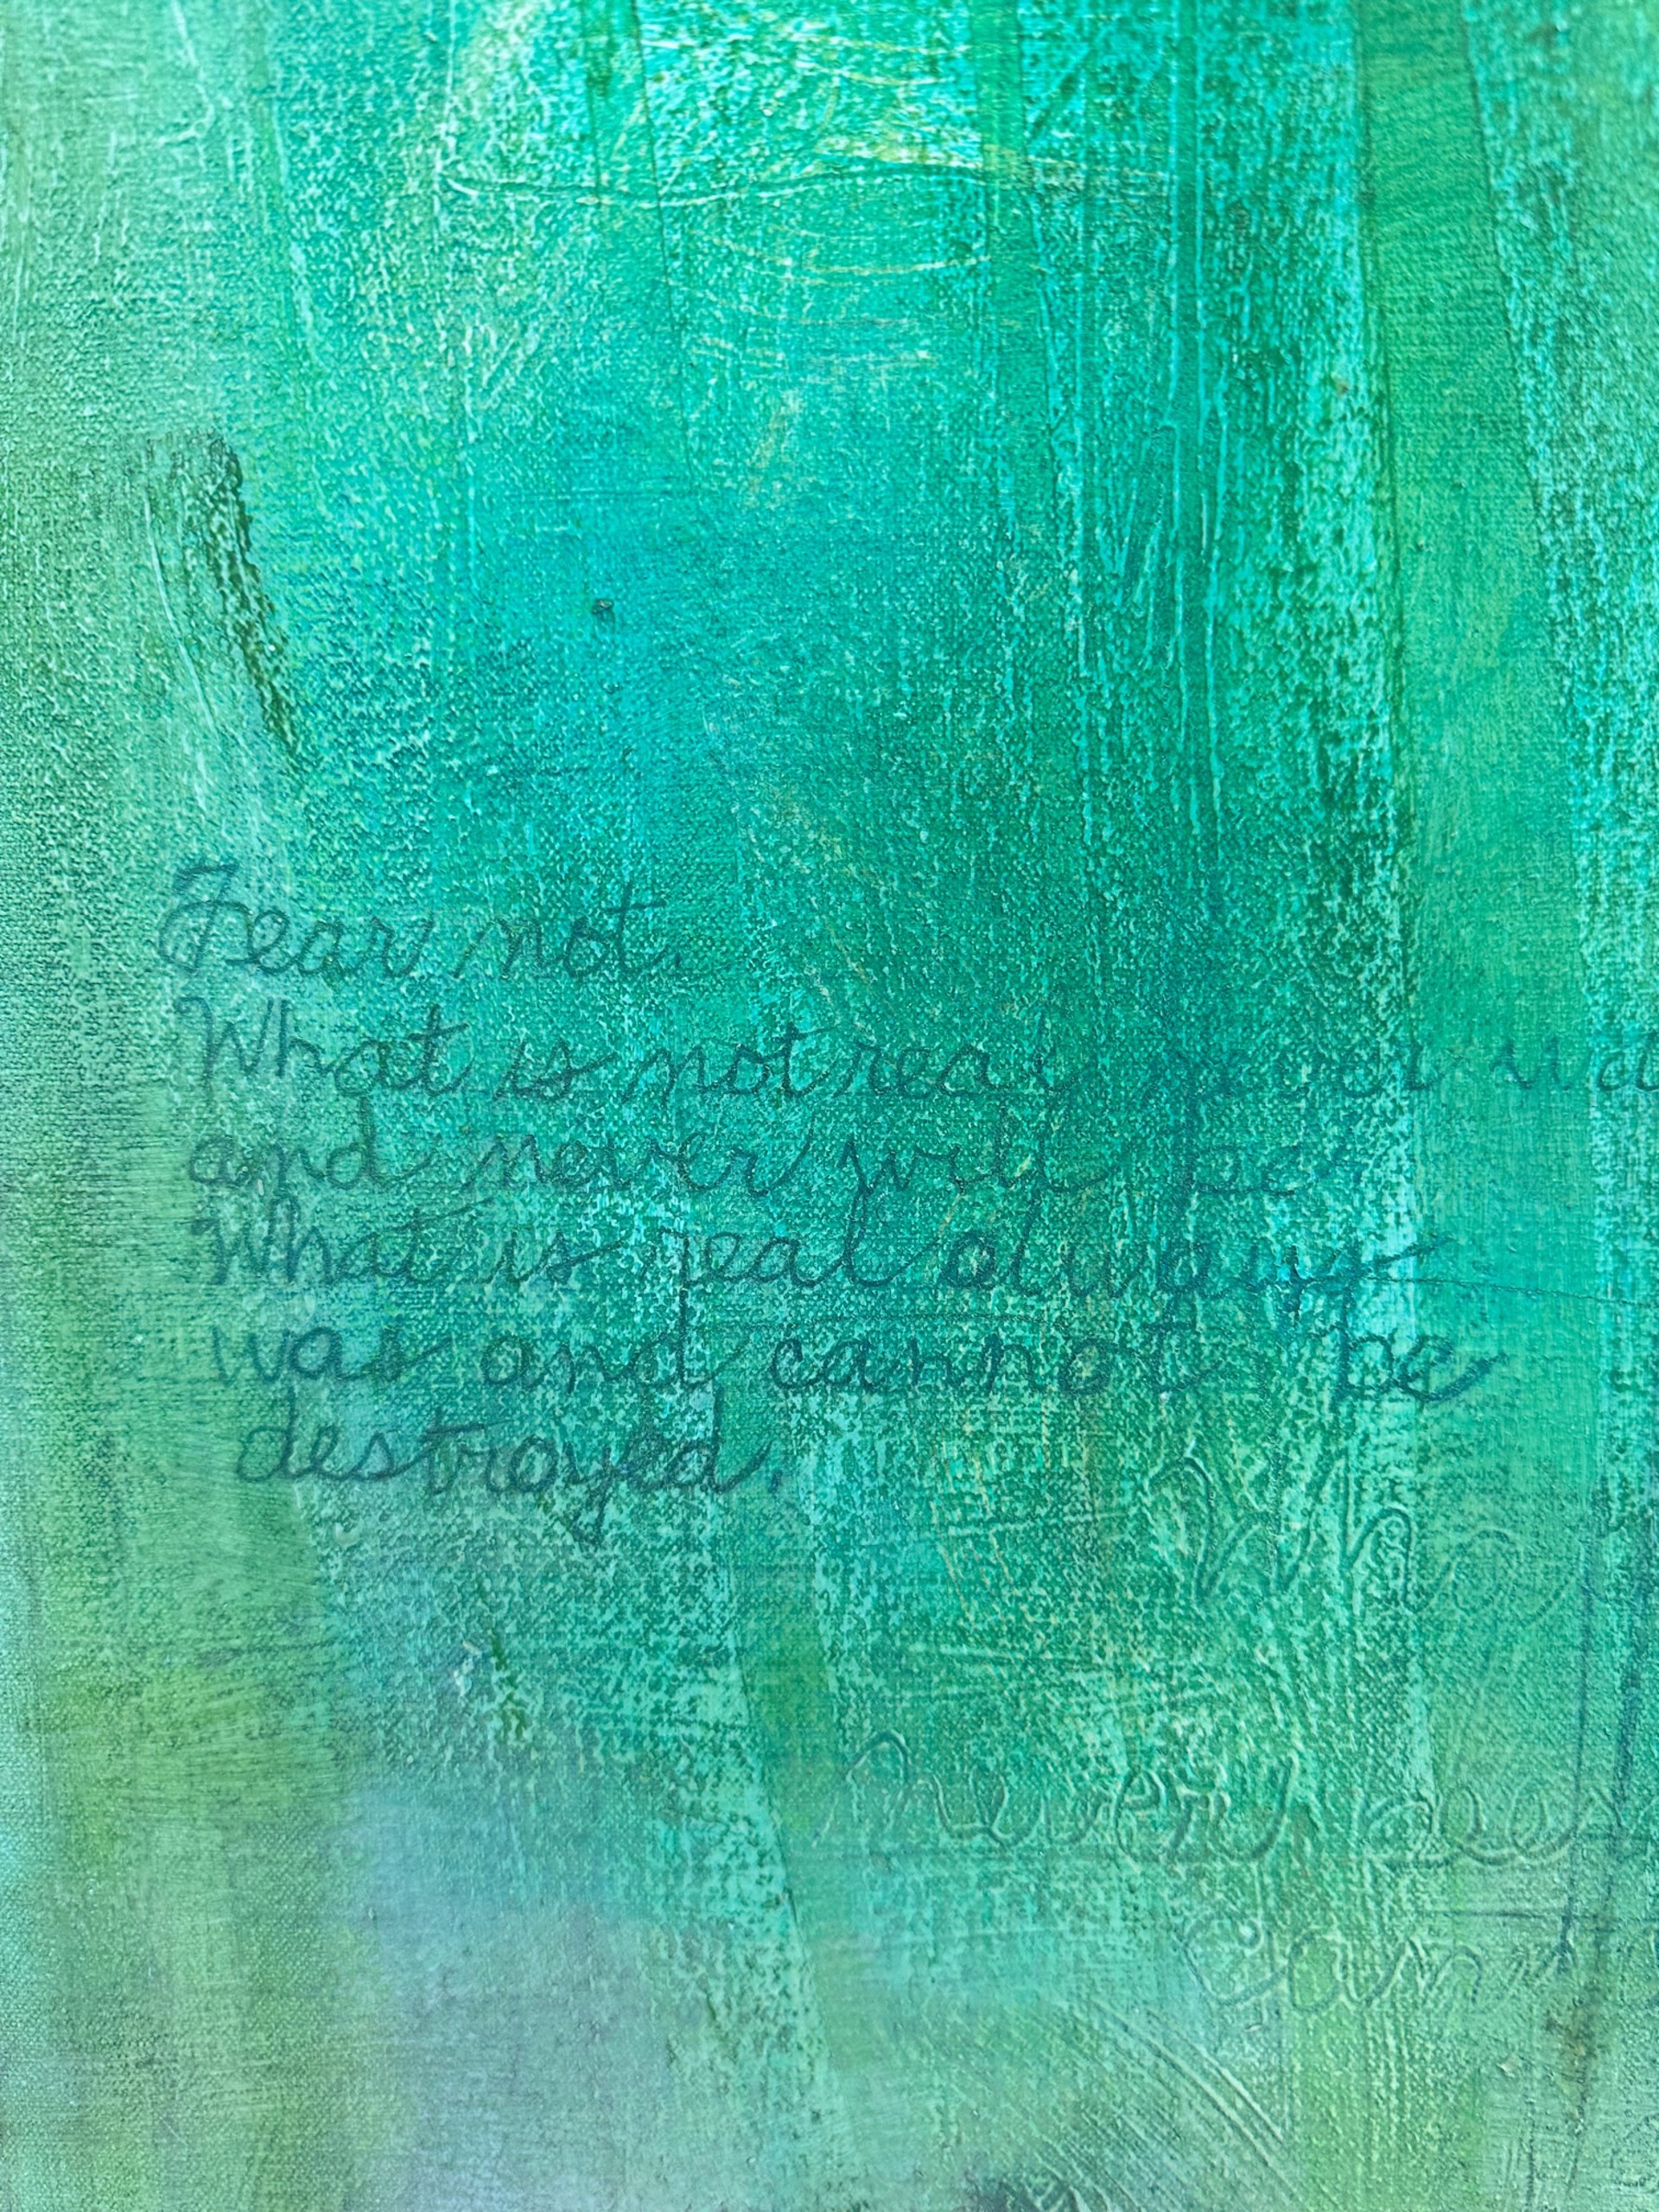 Fear not.
What is not real never was
and never will be.
What is real always
was and cannot be
destroyed.
Wha
never des
cannot